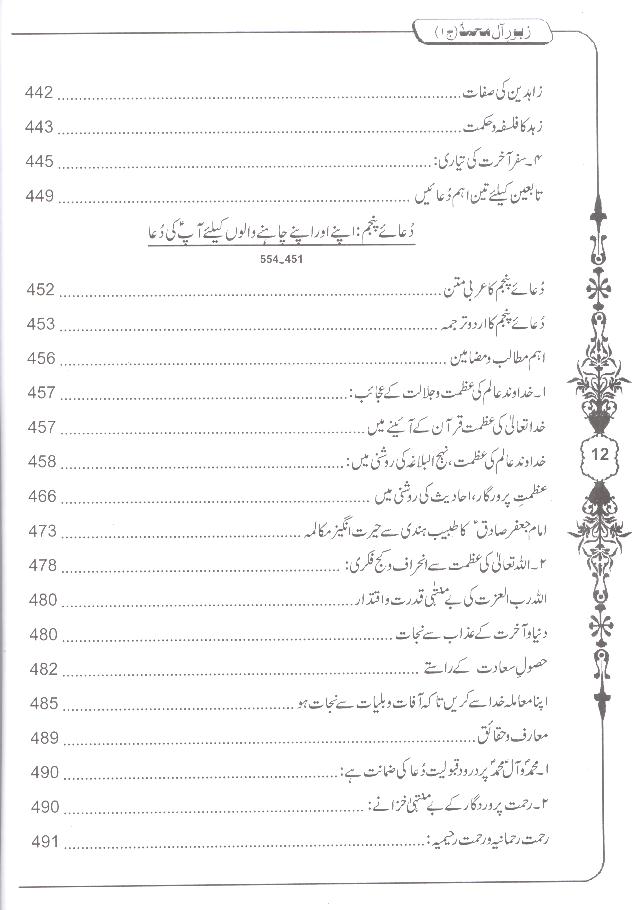 زبورِ آلِ محمدؐ (ج۱)
زاہدین کی صفات 442
زہد کا فلسفہ و حکمت 443
۴۔ سفرِ آخرت کی تیاری: 445
تابعین کیلئے تین اہم دُعائیں 449
دُعائے پنجم: اپنے اور اپنے چاہنے والوں کیلئے آپؑ کی دُعا
554_451
دُعائے پنجم کا عربی متن 452
دُعائے پنجم کا اردو ترجمہ 453
اہم مطالب و مضامین 456
۱۔ خداوند عالم کی عظمت و جلالت کے عجائب: 457
خدا تعالیٰ کی عظمت قرآن کے آئینے میں 457
خداوند عالم کی عظمت، نہج البلاغہ کی روشنی میں: 458
عظمتِ پرورگار، احادیث کی روشنی میں 466
امام جعفر صادقؑ کا طبیب ہندی سے حیرت انگیز مکالمہ 473
۲۔ اللہ تعالیٰ کی عظمت سے انحراف و کج فکری: 478
اللہ رب العزت کی بے منتہیٰ قدرت و اقتدار 480
دنیا و آخرت کے عذاب سے نجات 480
حصولِ سعادت کے راستے 482
اپنا معاملہ خدا سے کریں تاکہ آفات و بلیات سے نجات ہو 485
معارف و حقائق 489
۱۔ محمدؐ و آلِ محمدؐ پر درود قبولیت دُعا کی ضمانت ہے: 490
۲۔ رحمت پروردگار کے بے منتہیٰ خزانے: 490
رحمت رحمانیہ و رحمت رحیمیہ: 491
12